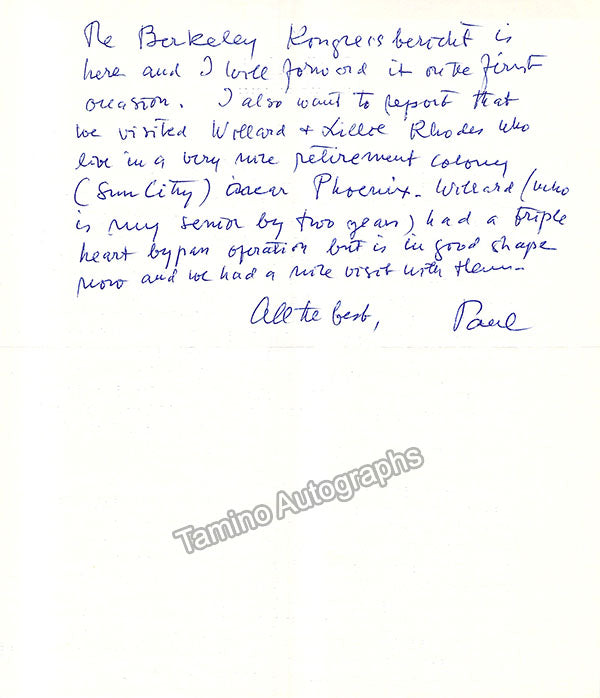 The Berkeley Kongressbericht is
here and I will forward it on the first
occasion. I also want to report that
we visited Willard + Lillie Rhodes who
live in a very nice retirement colony
(Sun City) near Phoenix. Willard (who
is my senior by two years) had a triple
heart bypass operation but is in good shape
now and we had a nice visit with them.
All the best, Paul
Tamino Autographs